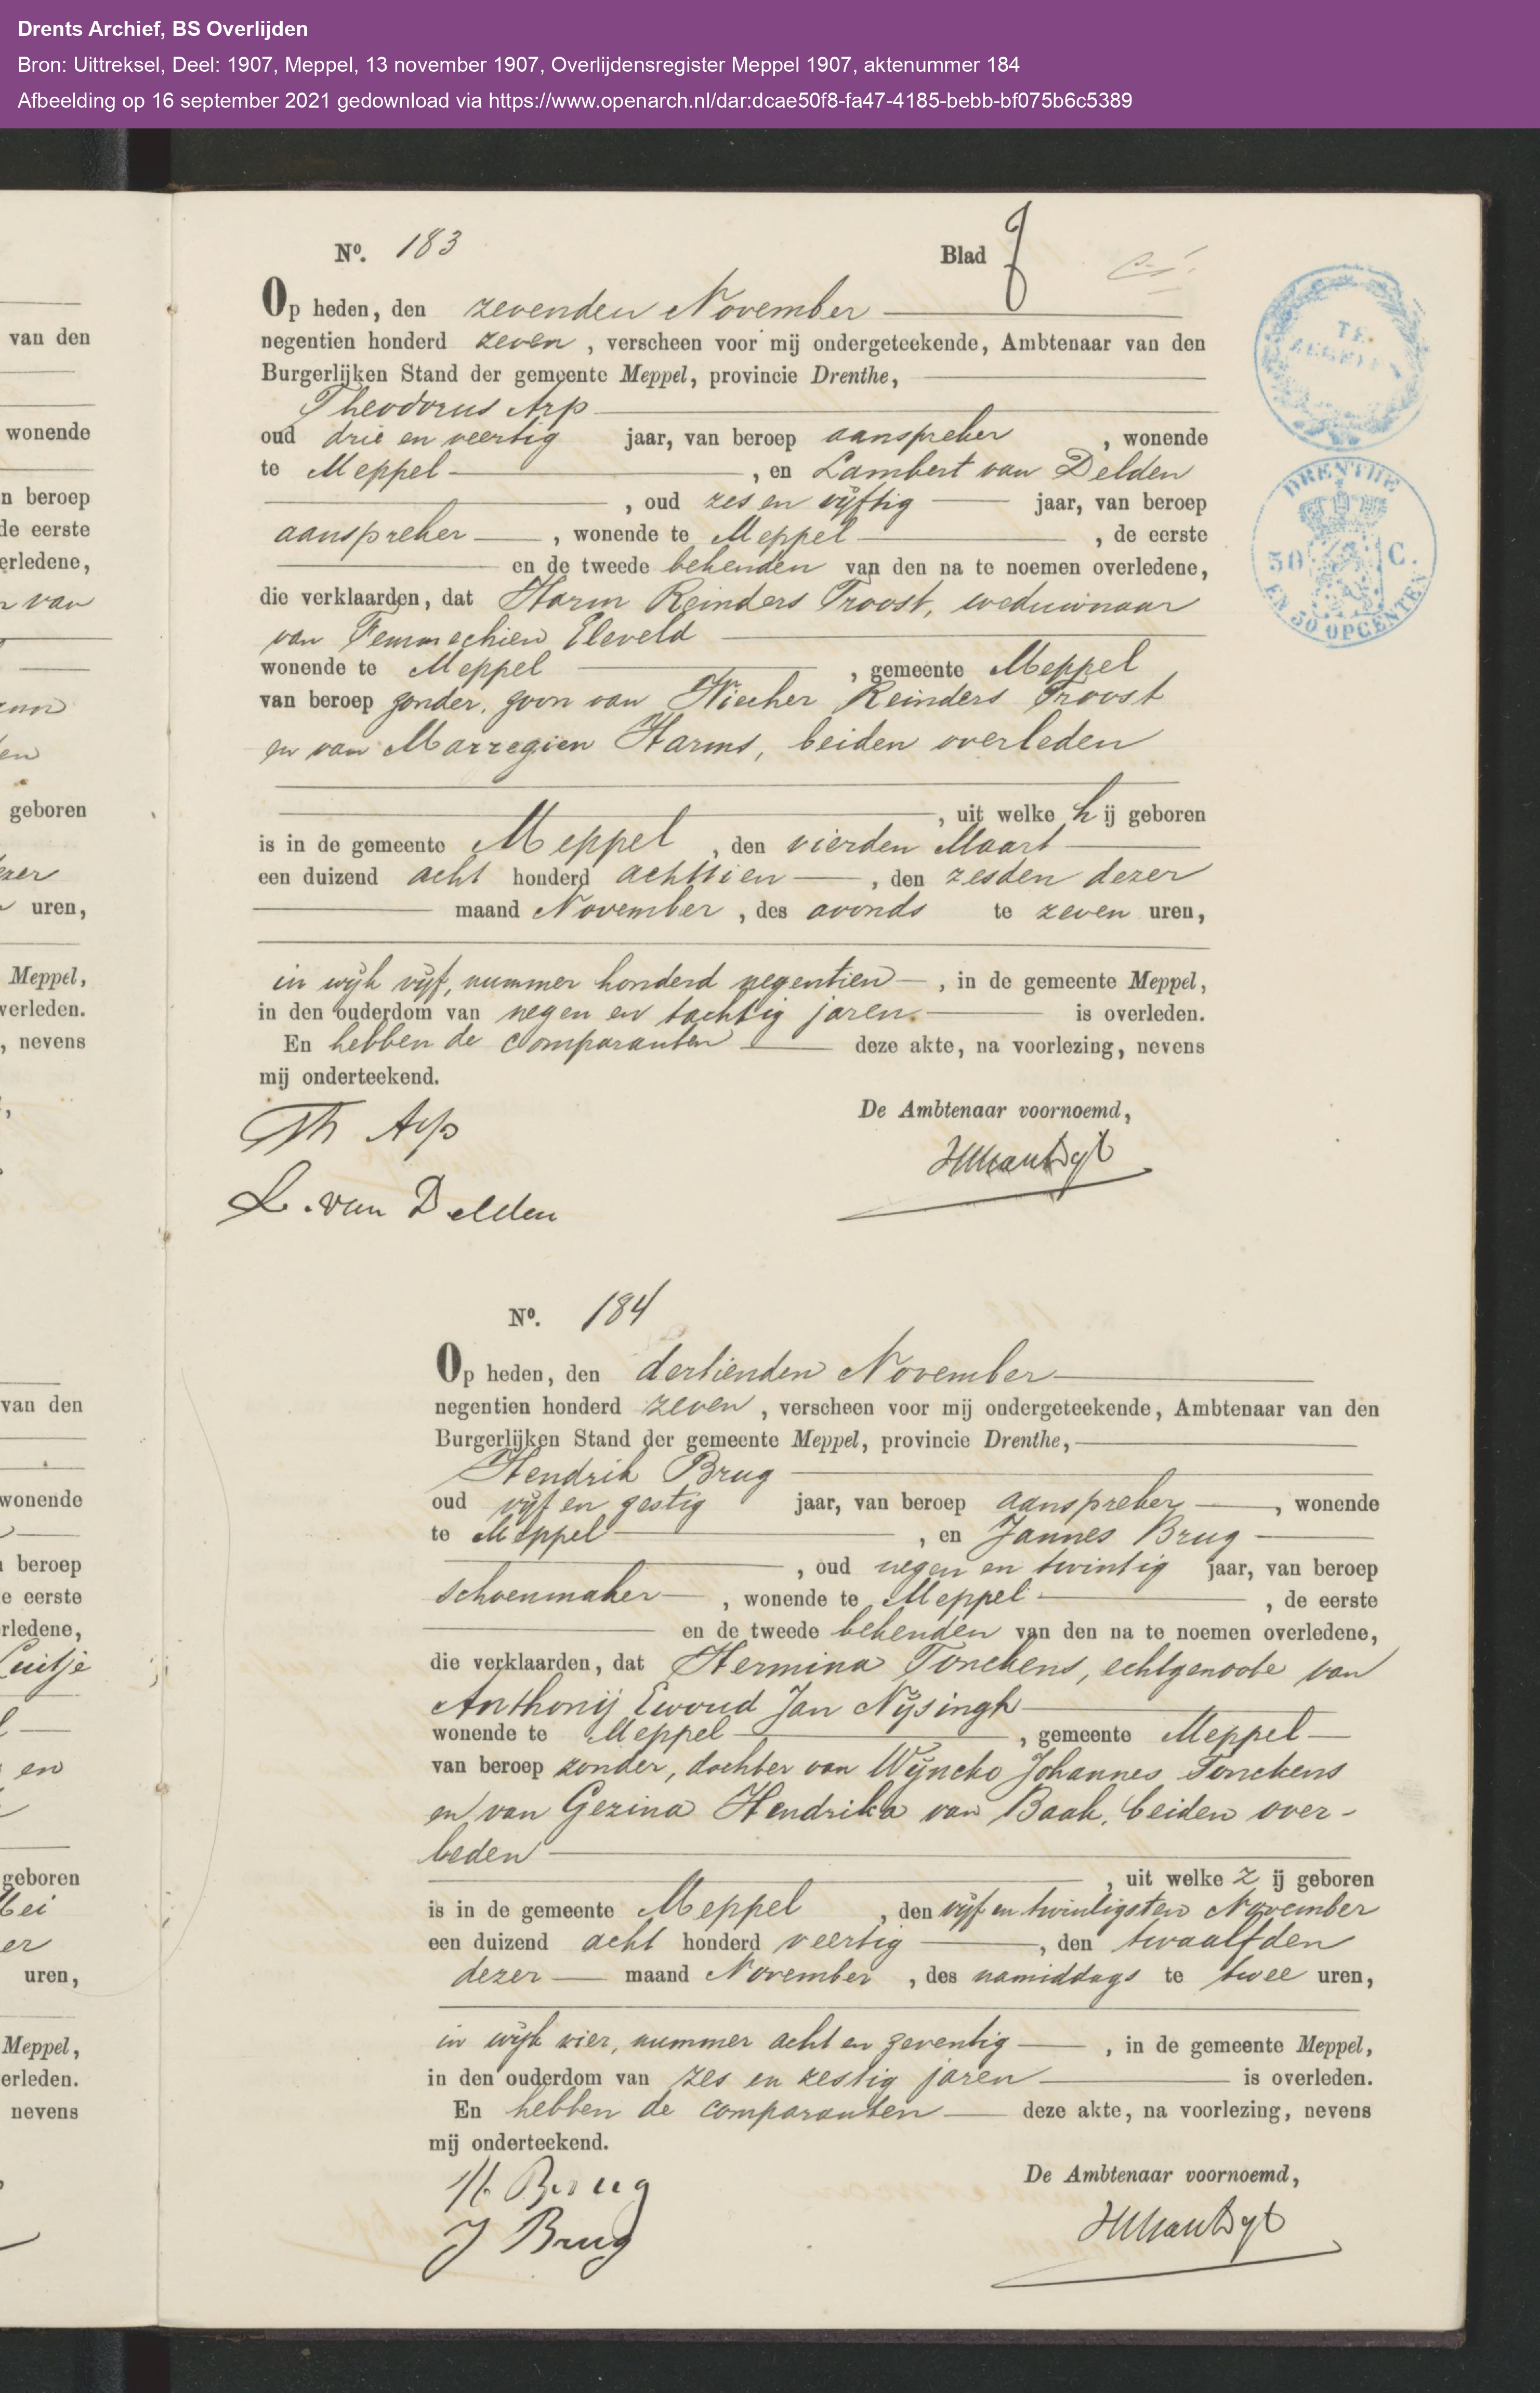 Drents Archief, BS Overlijden
Bron: Uittreksel, Deel: 1907, Meppel, 13 november 1907, Overlijdensregister Meppel 1907, aktenummer 184
Afbeelding op 16 september 2021 gedownload via https://www.openarch.nl/dar:dcae50f8-fa47-4185-bebb-bf075b6c5389
van den
wonende
n beroep
de eerste
erledene,
van
en
geboren
uren,
Meppel,
verleden.
, nevens
van den
wonende
beroep
e eerste
rledene,
Luitje
en
geboren
er
uren,
Meppel,
erleden.
nevens
No. 183
Blad
Op heden, den zevenden November
negentien honderd zeven, verscheen voor mij ondergeteekende, Ambtenaar van den
Burgerlijken Stand der gemeente Meppel, provincie Drenthe,
Theodorus Arp
oud drie en veertig jaar, van beroep aanspreker, wonende
te Meppel, en Lambert van Delden
, oud zes en vijftig jaar, van beroep
aanspreker, wonende te Meppel, de eerste
en de tweede bekenden van den na te noemen overledene,
die verklaarden, dat Harm Reinders Troost, weduwnaar
van Femmechien Eleveld
wonende te Meppel, gemeente Meppel
van beroep zonder, zoon van Wiecher Reinders Troost
en van Marregien Harms, beiden overleden
, uit welke hij geboren
is in de gemeente Meppel, den vierden Maart
een duizend acht honderd achttien, den zesden dezer
maand November, des avonds te zeven uren,
in wijk vijf, nummer honderd negentien, in de gemeente Meppel,
in den ouderdom van negen en tachtig jaren. is overleden.
En hebben de comparanten deze akte, na voorlezing, nevens
mij onderteekend.
De Ambtenaar voornoemd,
Th Arp
L. van Delden
DRENTHE
50 C.
EN 50 OPCENTEN
No. 184
Op heden, den dertienden November
negentien honderd zeven, verscheen voor mij ondergeteekende, Ambtenaar van den
Burgerlijken Stand der gemeente Meppel, provincie Drenthe,
Hendrik Brug
oud vijf en zestig jaar, van beroep aanspreker, wonende
te Meppel, en Jannes Brug
, oud negen en twintig jaar, van beroep
schoenmaker, wonende te Meppel, de eerste
en de tweede bekenden van den na te noemen overledene,
die verklaarden, dat Hermina Tonckens, echtgenoote van
Anthonij Ewoud Jan Nijsingh
wonende te Meppel, gemeente Meppel
van beroep zonder, dochter van Wijncko Johannes Tonckens
en van Gezina Hendrika van Baak, beiden over-
leden
, uit welke zij geboren
is in de gemeente Meppel, den vijf en twintigsten November
een duizend acht honderd veertig, den twaalfden
dezer maand November, des namiddags te twee uren,
in wijk vier, nummer acht en zeventig, in de gemeente Meppel,
in den ouderdom van zes en zestig jaren is overleden.
En hebben de comparanten deze akte, na voorlezing, nevens
mij onderteekend.
De Ambtenaar voornoemd,
H. Brug
J Brug